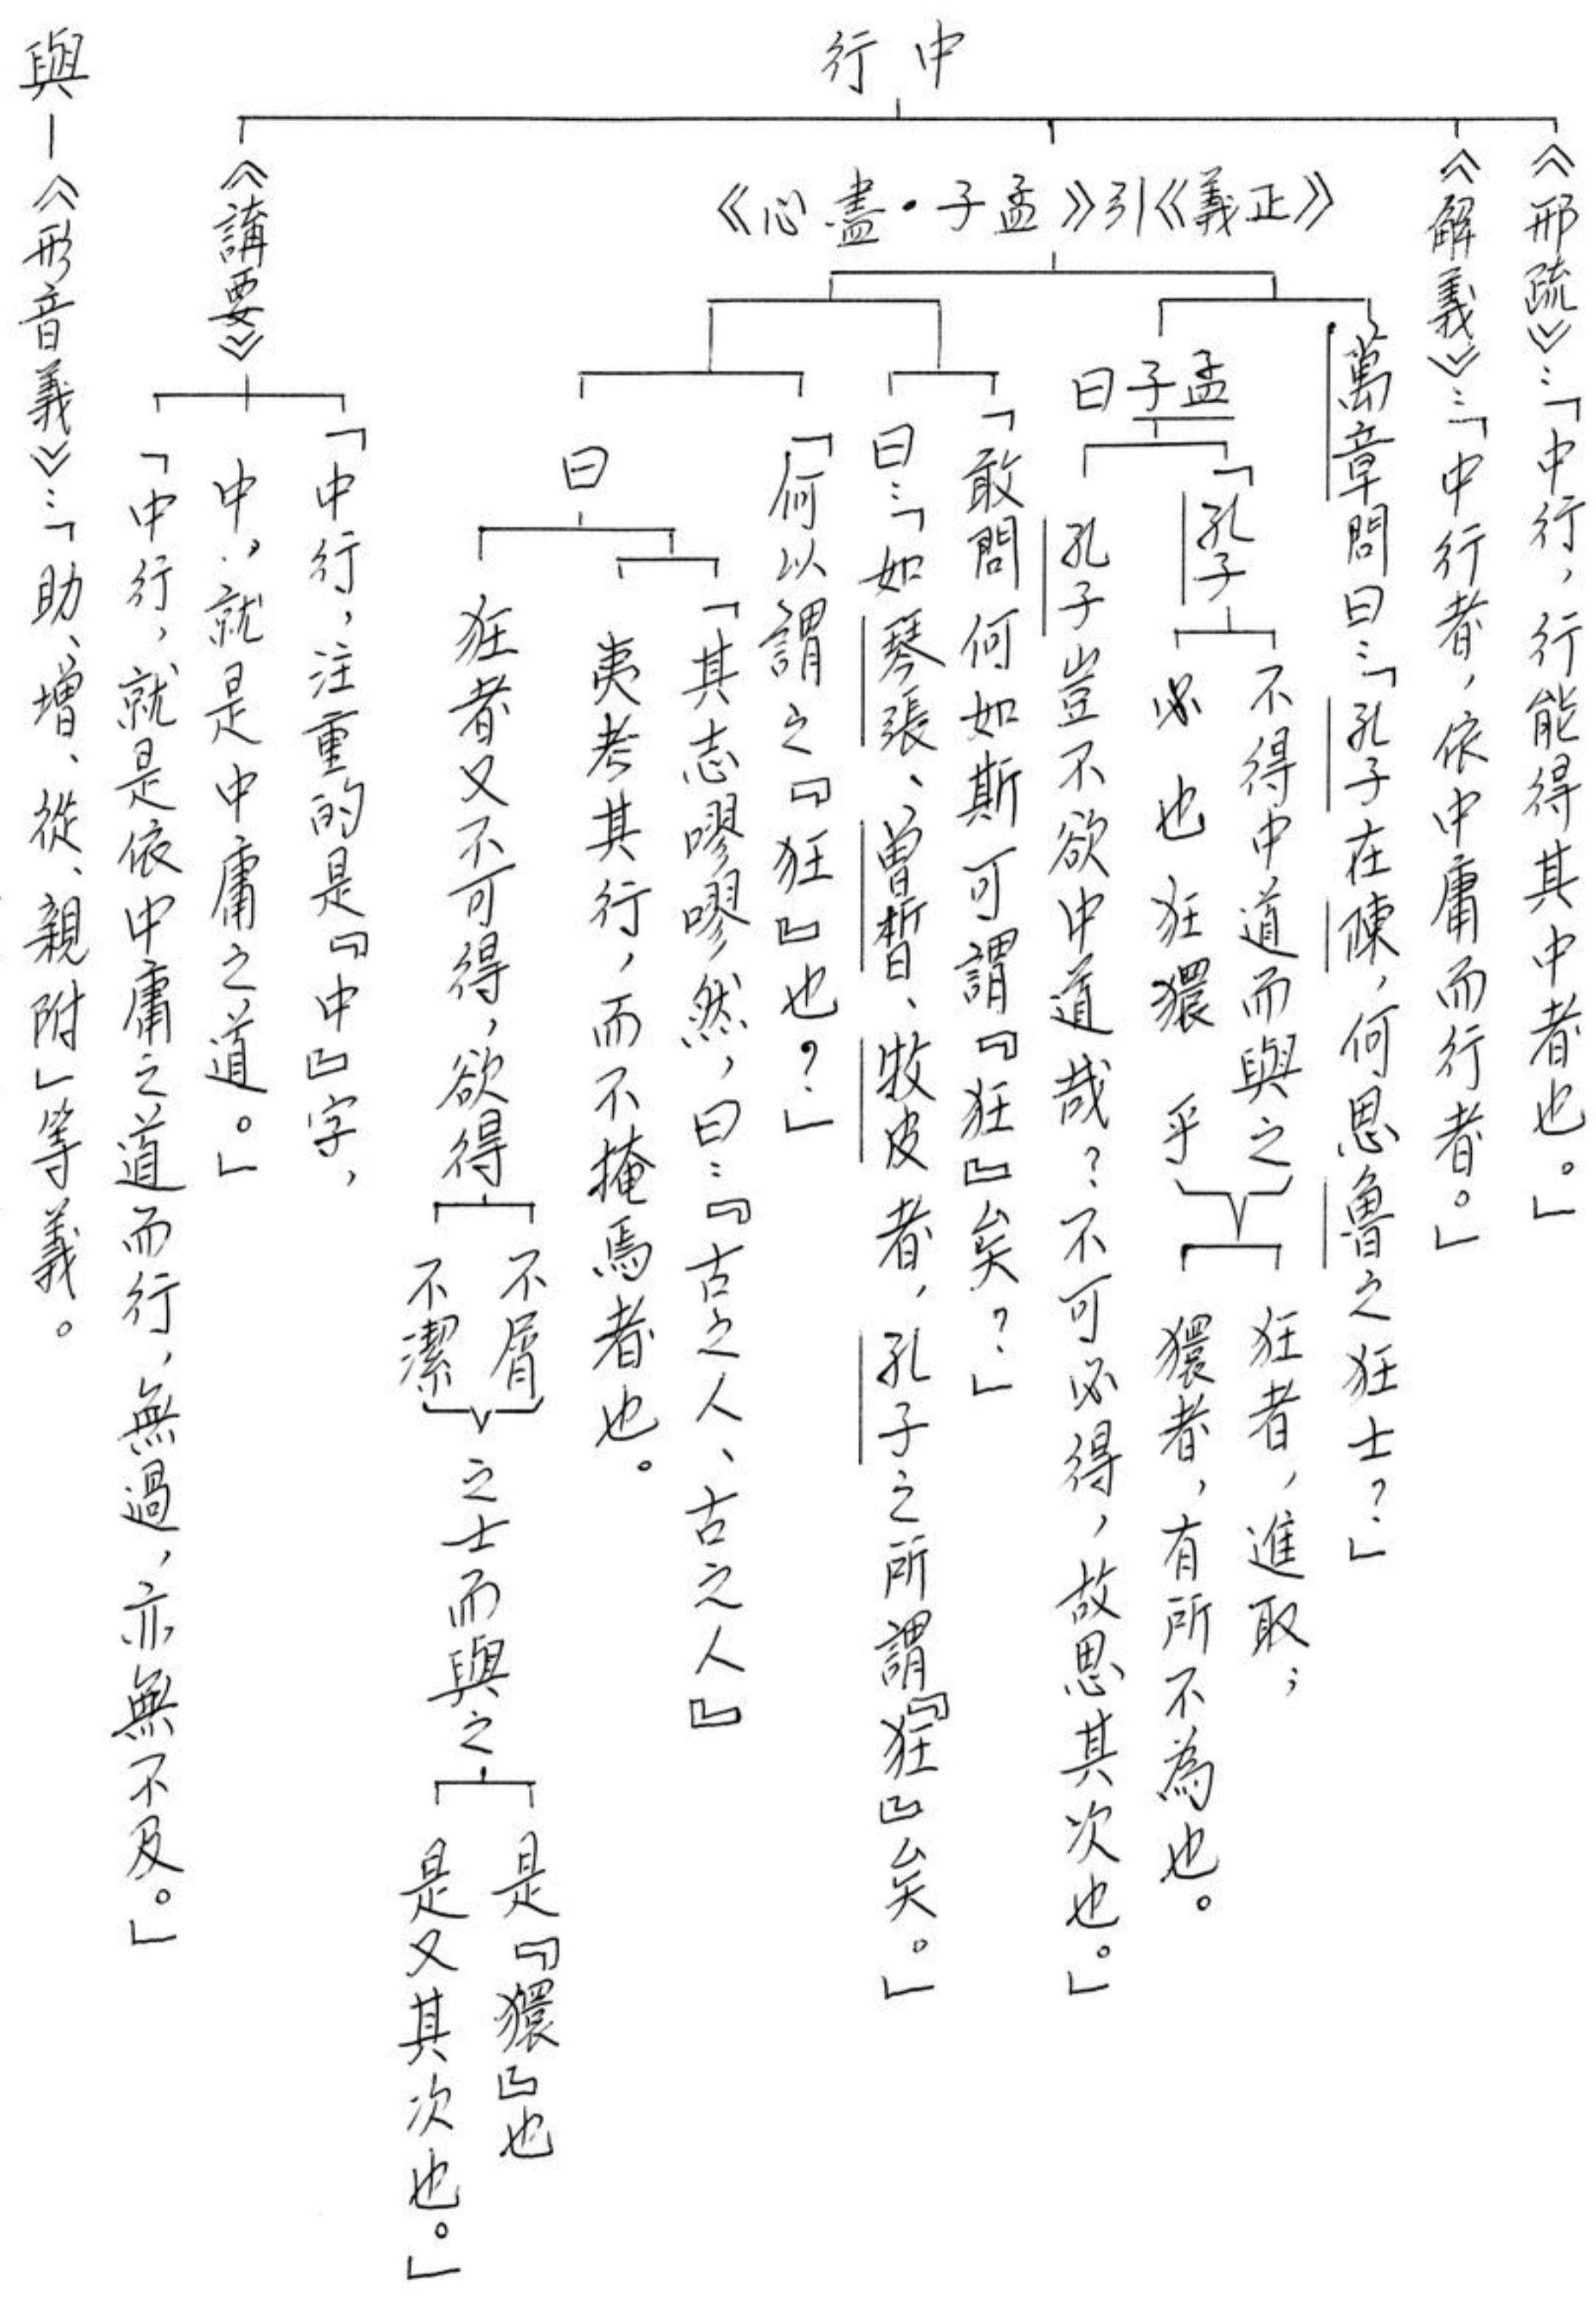 中行
《邢疏》：「中行，行能得其中者也。」
《解義》：「中行者，依中庸而行者。」
《正義》引《孟子·盡心》
萬章問曰：「孔子在陳，何思魯之狂士？」
孟子曰
「孔子
不得中道而與之
必也狂獧乎
狂者，進取；
獧者，有所不為也。
孔子豈不欲中道哉？不可必得，故思其次也。」
「敢問何如斯可謂『狂』矣？」
曰：「如琴張、曾晳、牧皮者，孔子之所謂『狂』矣。」
「何以謂之『狂』也？」
曰
「其志嘐嘐然，曰：『古之人、古之人』
夷考其行，而不掩焉者也。
狂者又不可得，欲得
不屑
不潔
之士而與之
是『獧』也
是又其次也。」
《講要》
「中行，注重的是『中』字，
中，就是中庸之道。」
「中行，就是依中庸之道而行，無過，亦無不及。」
與—《形音義》：「助、增、從、親附」等義。